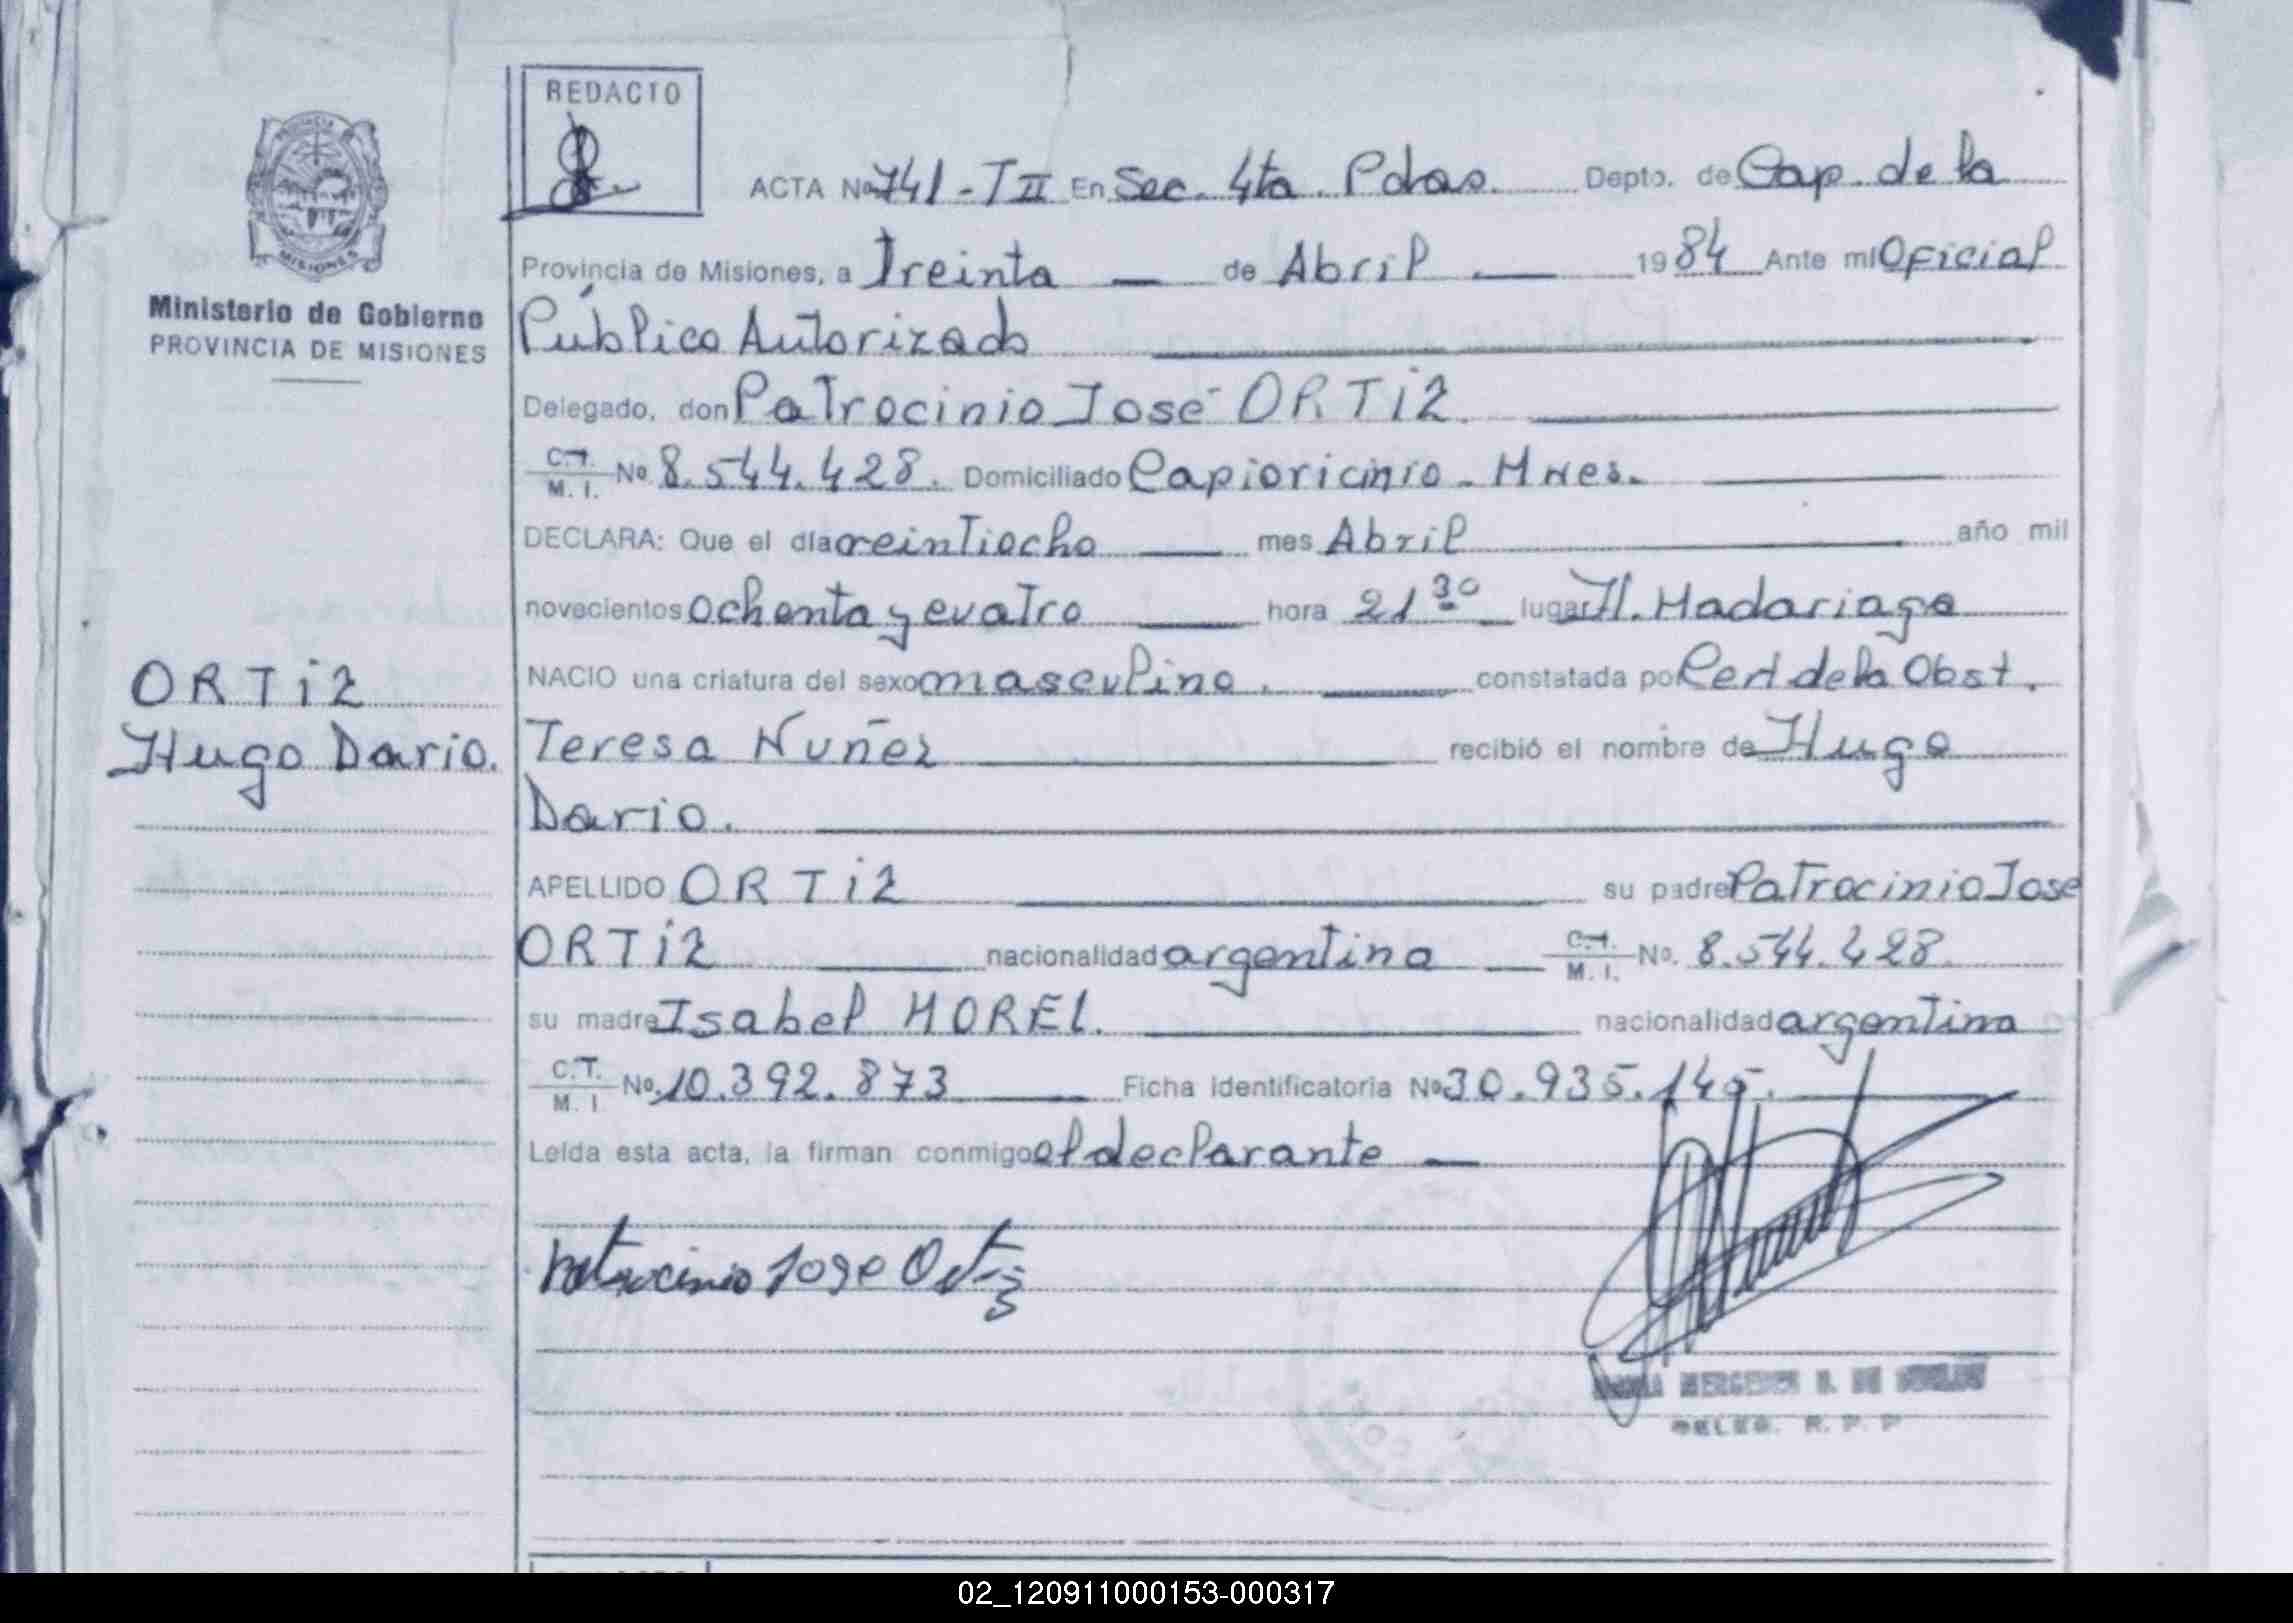 REDACTO
ACTA No 741 - T II En Sec. 4ta. Pdas. Depto. de Cap. de la
Provincia de Misiones, a Treinta — de Abril — 1984 Ante mi Oficial
Ministerio de Gobierno
PROVINCIA DE MISIONES
Público Autorizado
Delegado, don Patrocinio José ORTiZ.
C.I. M. I. No. 8.544.428. Domiciliado Capioviciño - Mnes.
DECLARA: Que el día veintiocho — mes Abril — año mil
novecientos ochenta y cuatro — hora 21 30 lugar H. Madariaga
ORTiZ
NACIO una criatura del sexo masculino. — constatada por Cert de la Obst.
Hugo Dario.
Teresa Nuñez — recibió el nombre de Hugo
Dario.
APELLIDO ORTiZ — su padre Patrocinio José
ORTiZ — nacionalidad argentina — C.I. M. I. No. 8.544.428.
su madre Isabel MOREL. — nacionalidad argentina
C.T. M. I No. 10.392.873 — Ficha identificatoria No 30.935.145.
Leída esta acta, la firman conmigo el declarante —
Patrocinio Jose Ortiz
DELEG. R. P. P
02_120911000153-000317